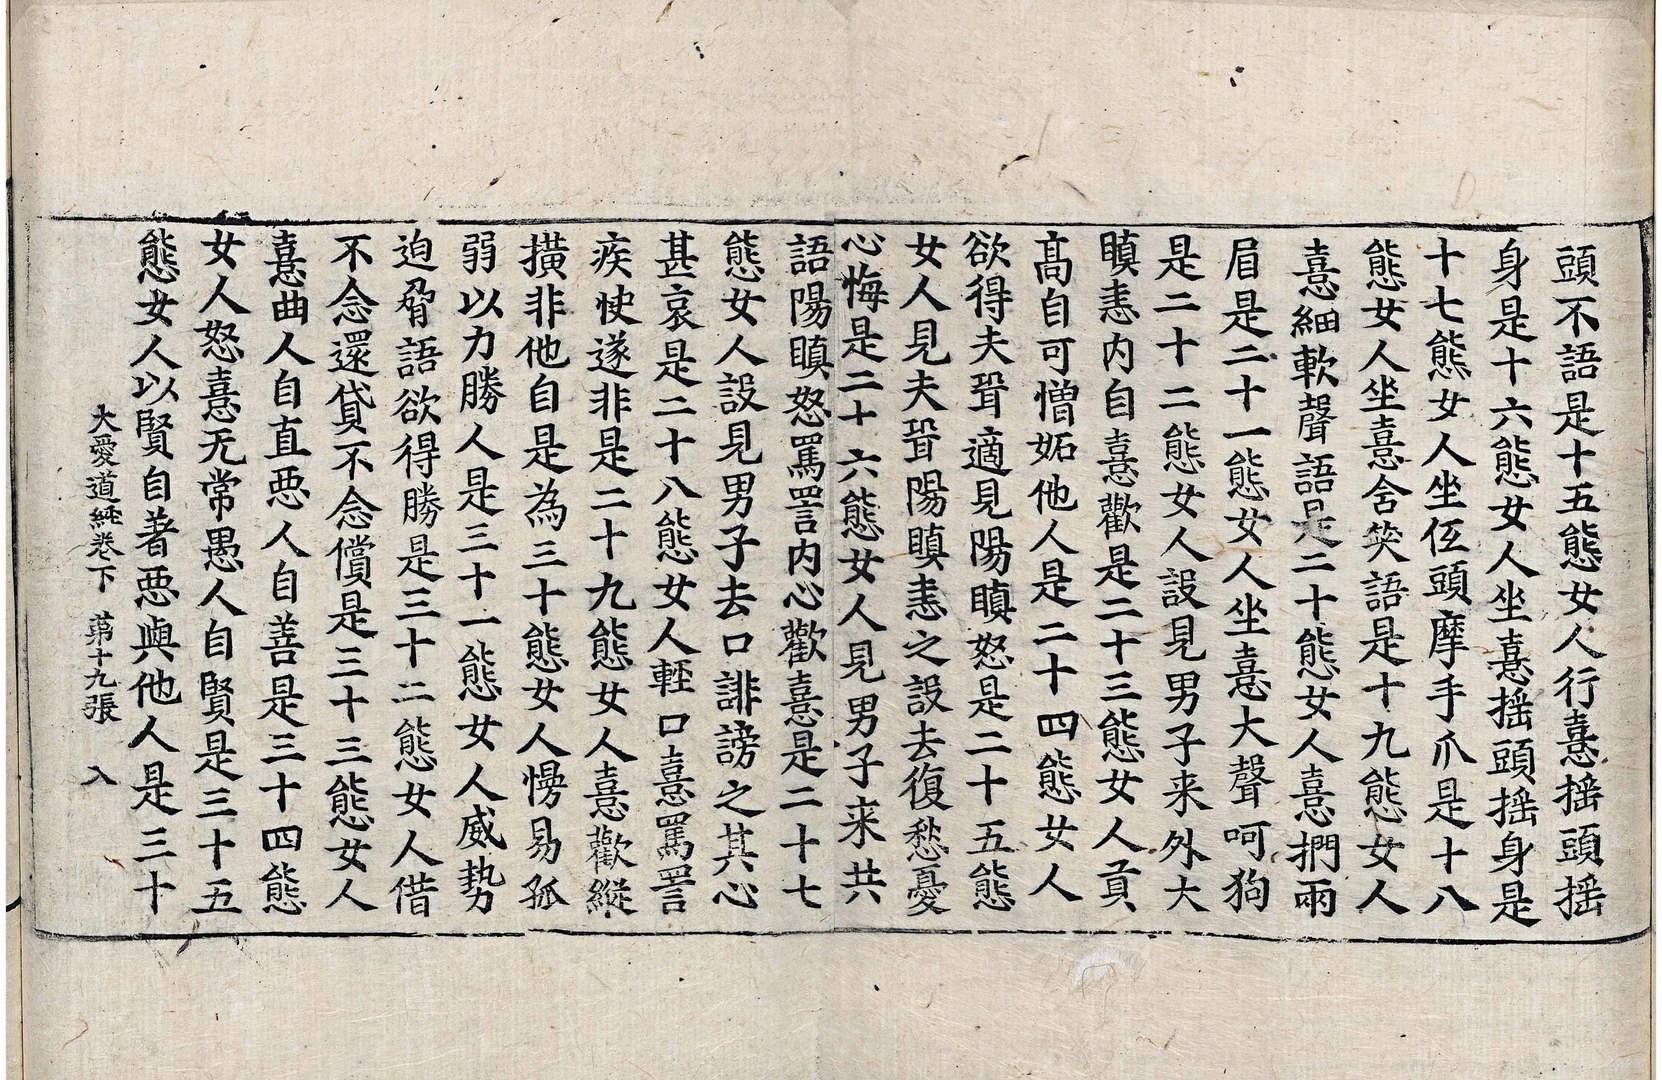 頭不語是十五態女人行憙摇頭摇
身是十六態女人坐憙摇頭摇身是
十七態女人坐伍頭摩手爪是十八
態女人坐憙含笑語是十九態女人
憙細軟聲語是二十態女人憙捫兩
眉是二十一態女人坐憙大聲呵狗
是二十二態女人設見男子来外大
瞋恚内自憙歡是二十三態女人貢
高自可憎妬他人是二十四態女人
欲得夫壻適見陽瞋怒是二十五態
女人見夫壻陽瞋恚之設去復愁憂
心悔是二十六態女人見男子来共
語陽瞋怒罵詈内心歡憙是二十七
態女人設見男子去口誹謗之其心
甚哀是二十八態女人輕口憙罵詈
疾快遂非是二十九態女人憙歡縱
撗非他自是為三十態女人慢易孤
弱以力勝人是三十一態女人威勢
迫脅語欲得勝是三十二態女人借
不念還貸不念償是三十三態女人
憙曲人自直惡人自善是三十四態
女人怒憙无常愚人自賢是三十五
態女人以賢自著惡與他人是三十
大愛道經卷下 第十九張 入